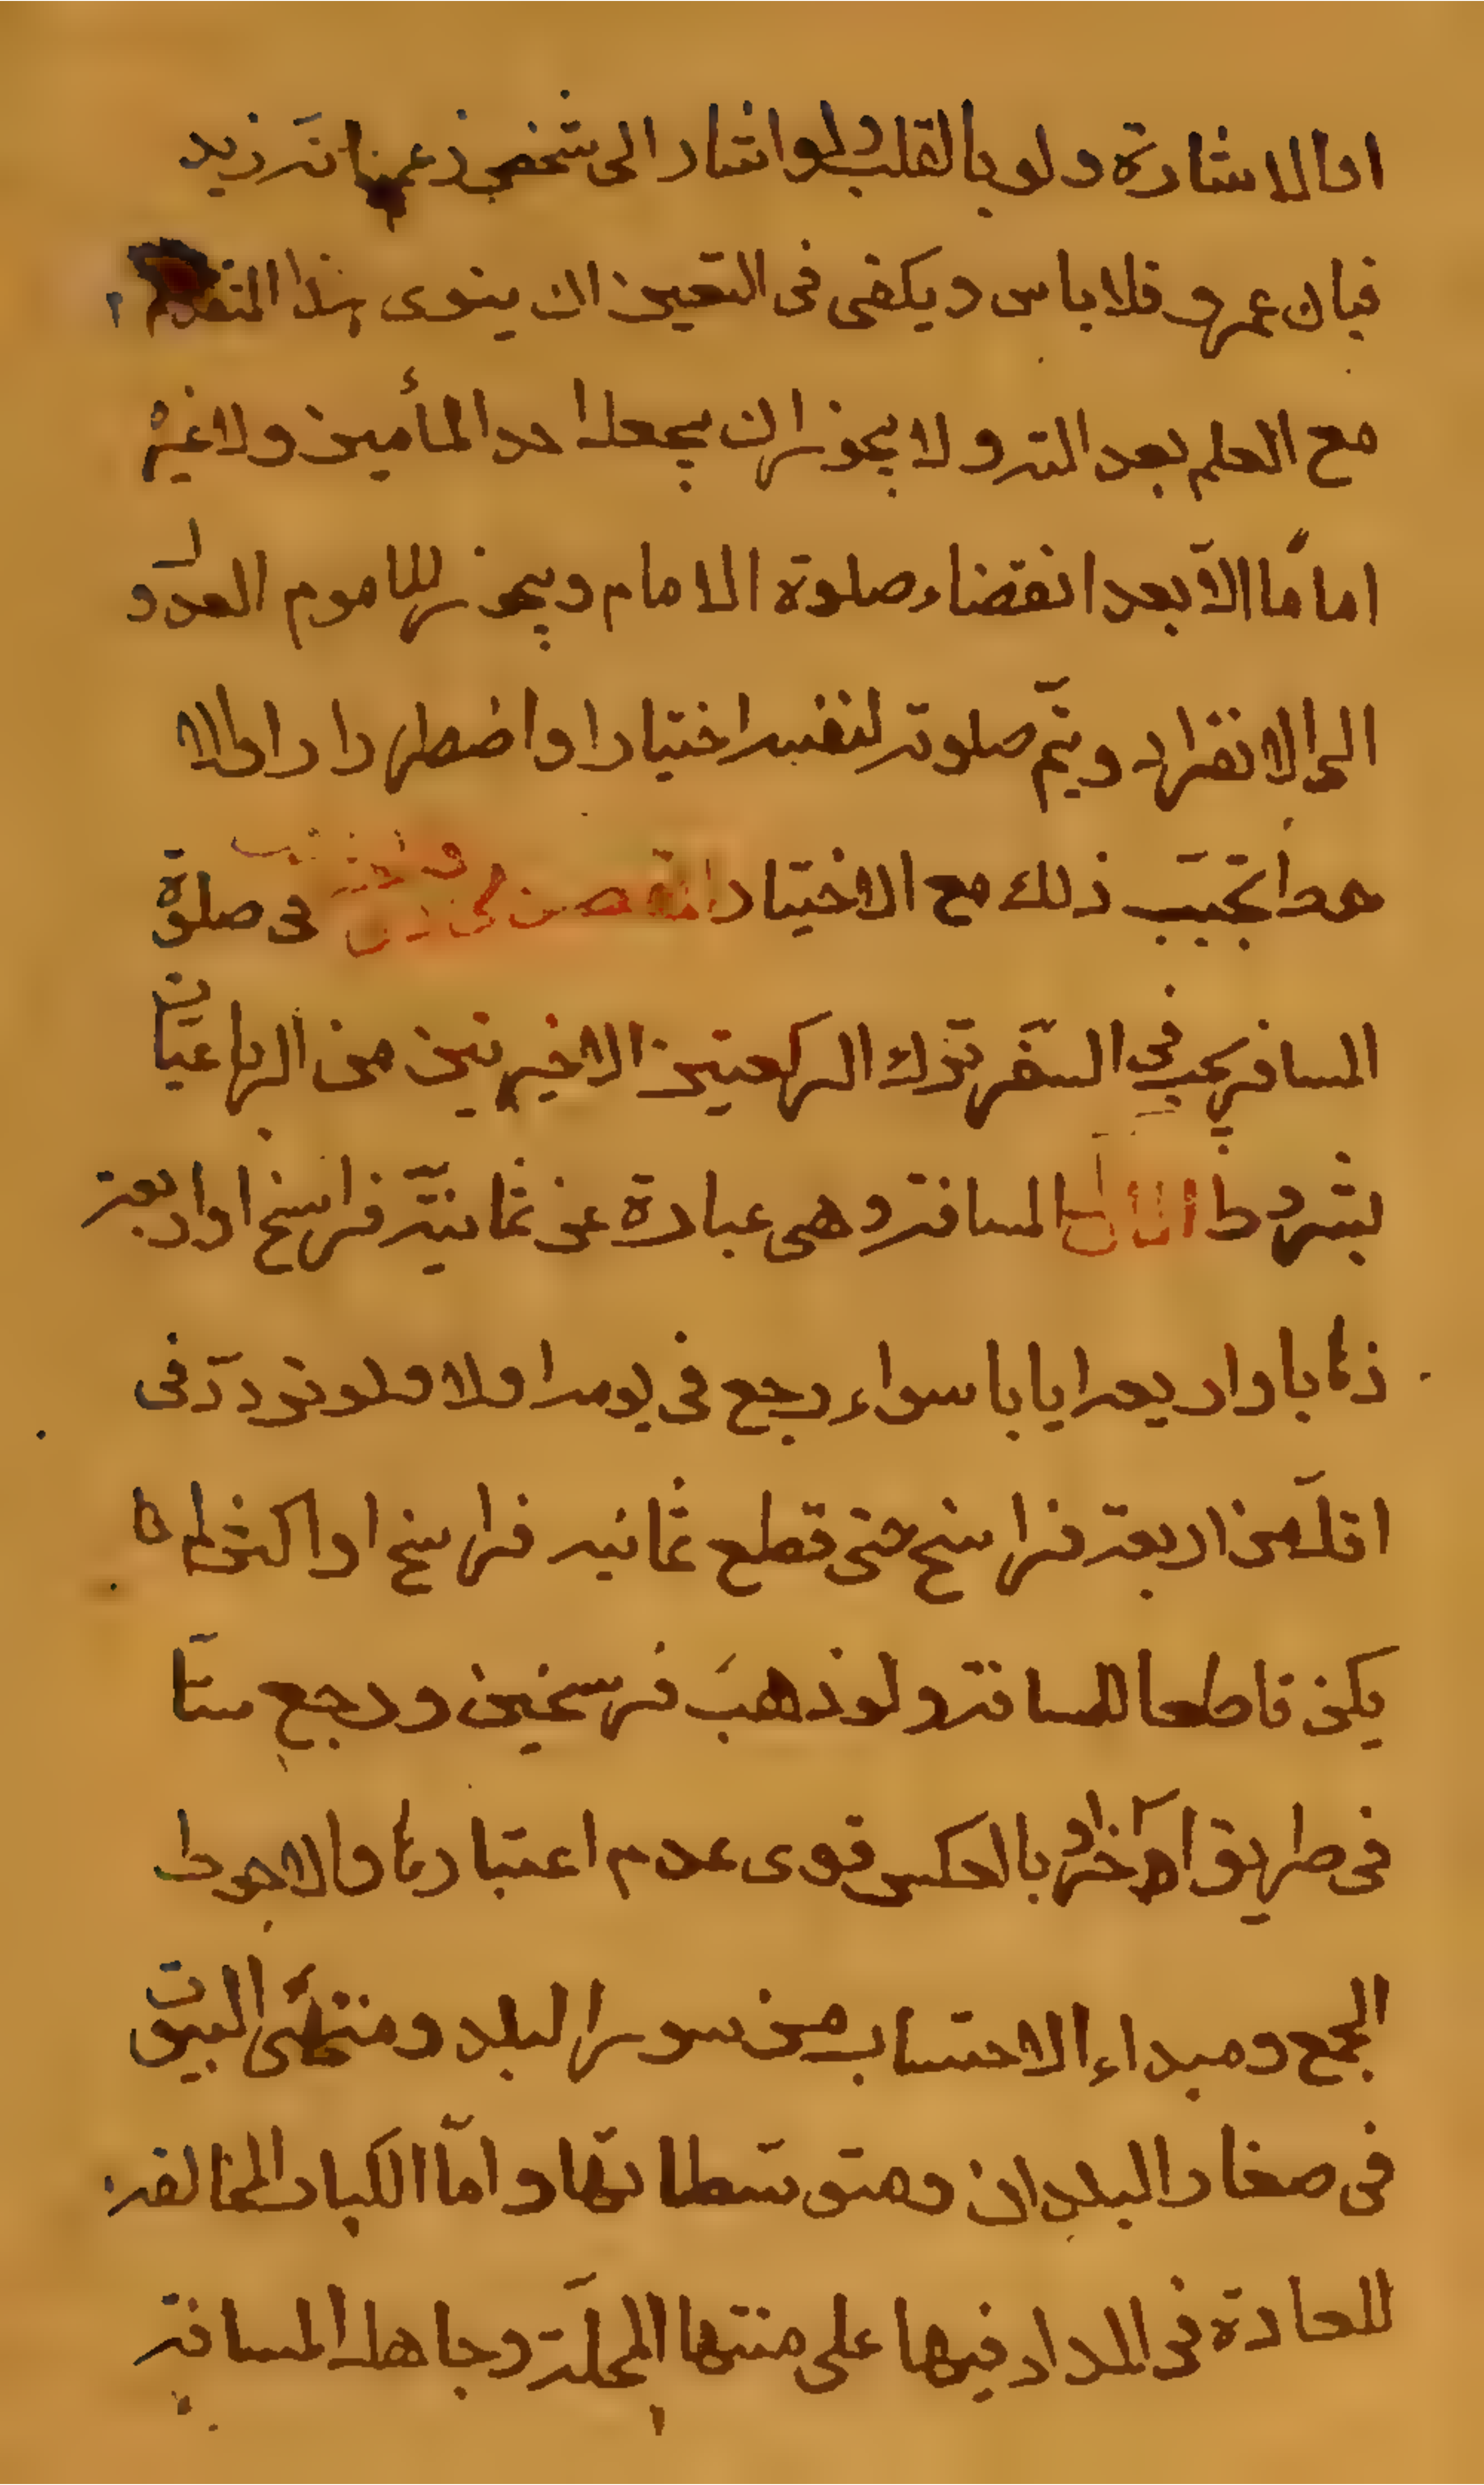 اما الاشارة ولو بالقلب ولو اشار الى شخص زعما انه زيد
فبان عمرو فلا باس ويكفى فى التعيين ان ينوى هذا المتقدم
مع العلم بعد الته ولا يجوز ان يجعل احد المأمين ولا غيره
اماما الّا بعد انقضاء صلوة الامام ويجوز للماموم العدول
الى الانفراد ويتمّ صلوته لنفسه اختيارا واضطرارا والا
حوط تجنّب ذلك مع الاختيار فى صلوة
المسافر يجب فى السّفر ترك الركعتين الاخيرتين من الرباعيّات
بشروط المسافة وهى عبارة عن ثمانيّة فراسخ او اربعة
ذهابا واربعه ايابا سواء رجع فى يومه ام لا ولو تردّد فى
اقلّ من اربعة فراسخ حتى قطع ثمانيه فراسخ او اكثر لم
يكن قاطعا للمسافة ولو ذهب فرسخين ورجع ستّا
فى طريق آخر او بالعكس قوى عدم اعتبارها والاحوط
الجمع ومبداء الاحتساب من سور البلد ومنتهى البيوت
فى صغار البلدان ومتوسّطاتها وامّا الكبار المخالفة
للعادة فى المدار فيها على منتها المحلّة وجاهل المسافة